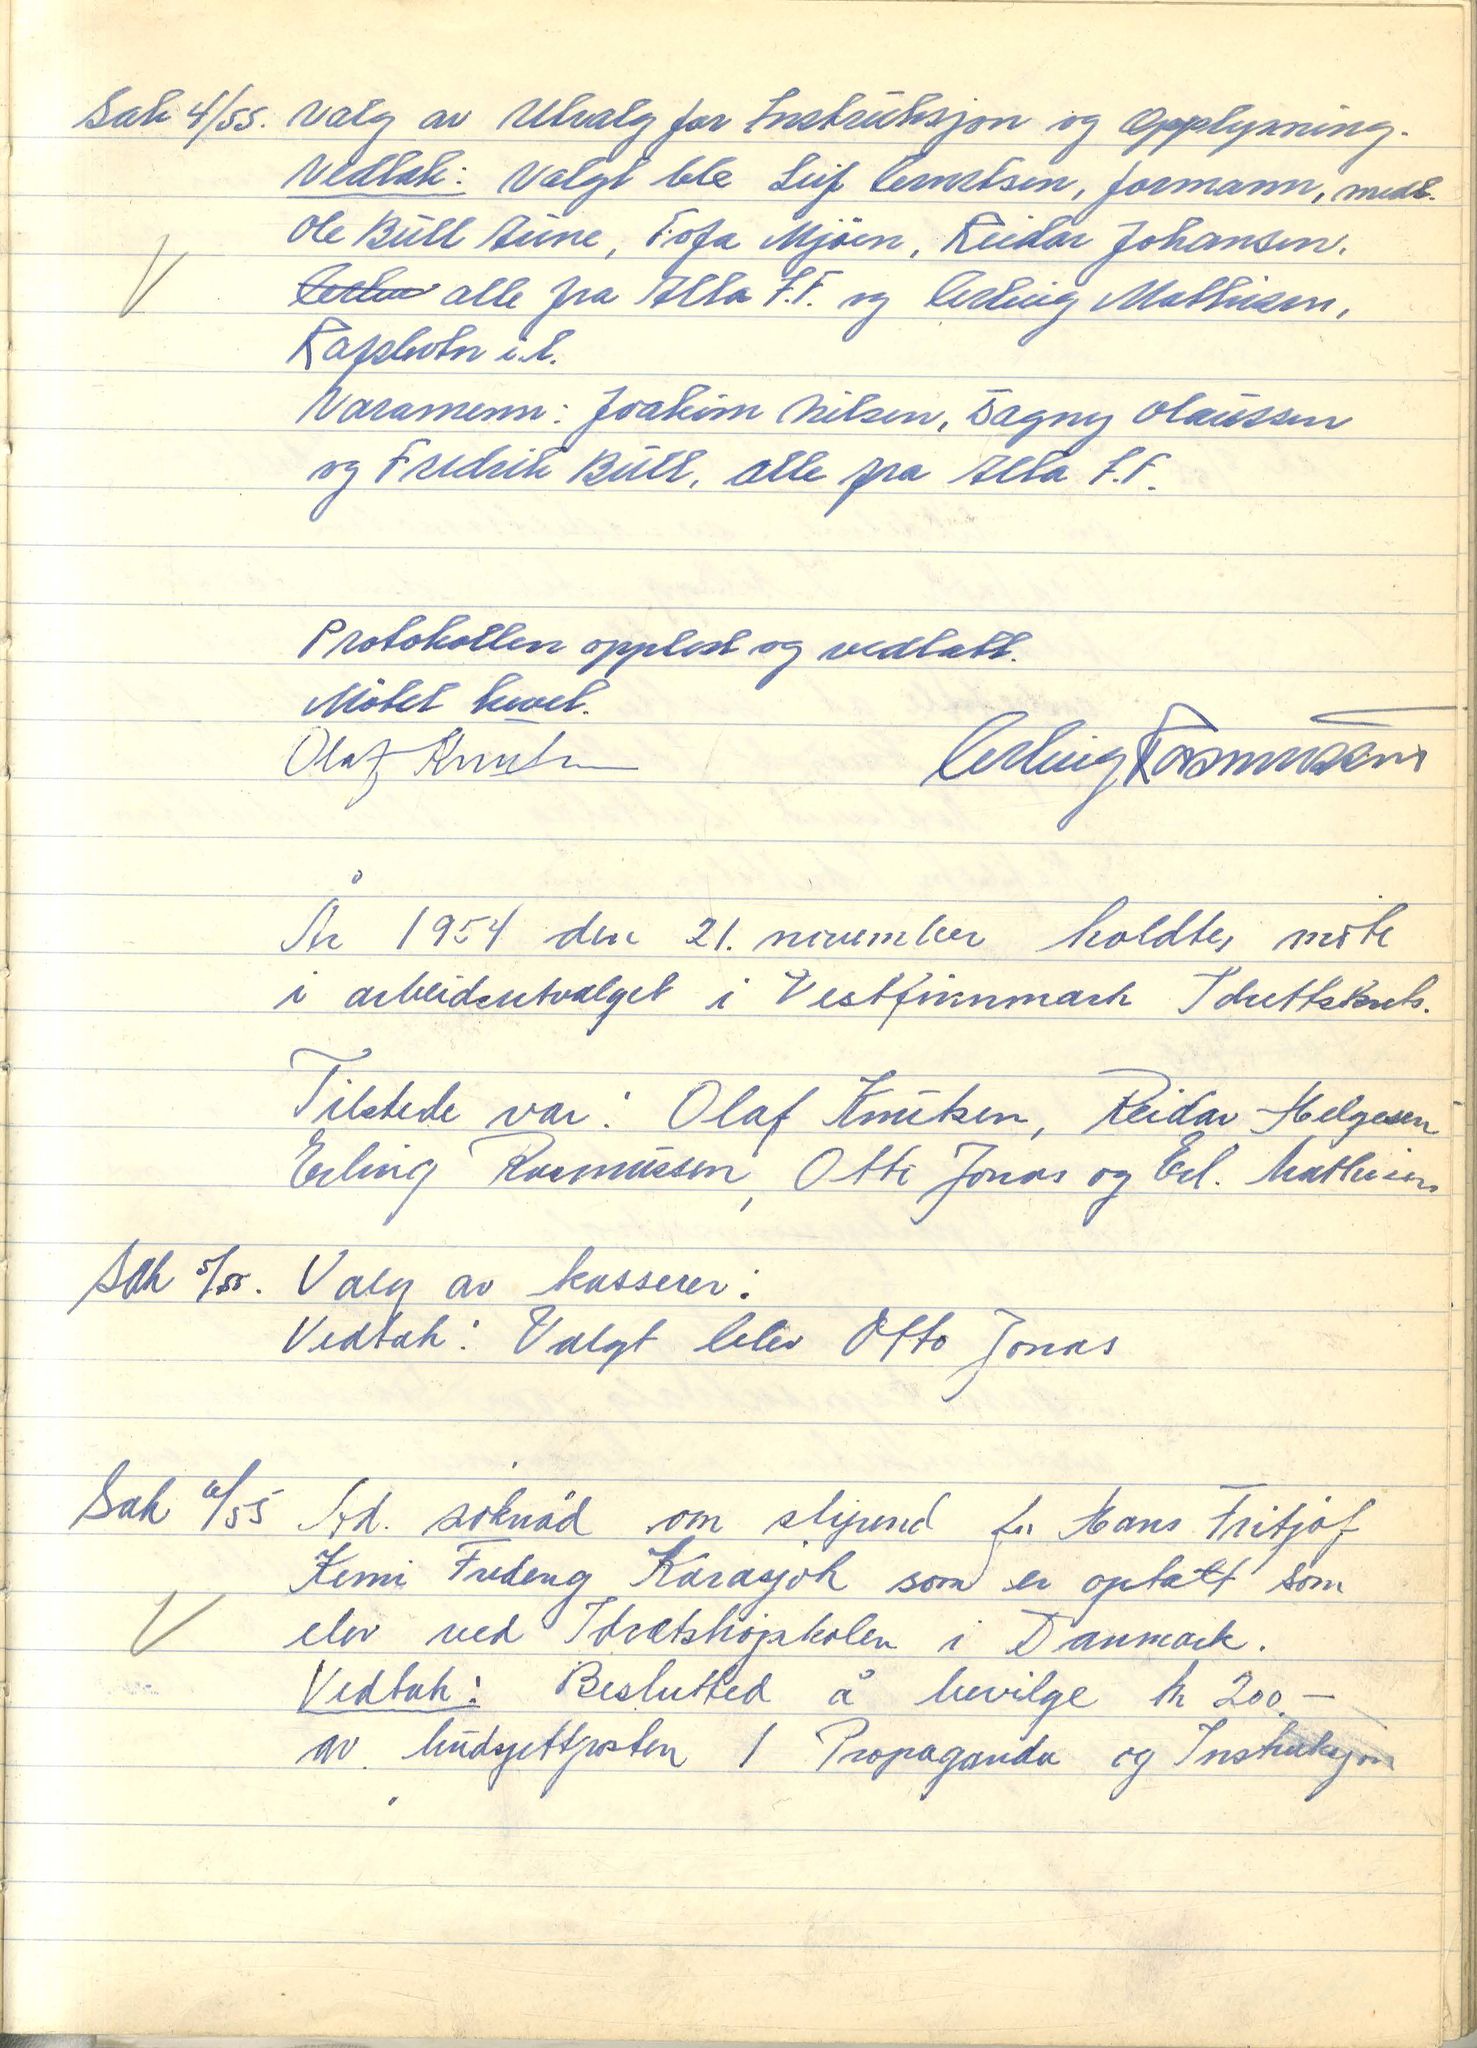 Sak 4/55. Valg av Utvalg for Instruksjon og Opplysning.
Vedtak: Valgt ble Leif Berntsen, formann, medl.
Ole Bull Aune, Tofa Mjøen, Reidar Johansen,
alle fra Alta I.F. og Erling Mathisen,
Rafsbotn i.l.
Varamenn: Joakim Nilsen, Dagny Olaussen
og Fredrik Bull, alle fra Alta I.F.
Protokollen opplest og vedtatt.
Møtet hevet.
Olaf Knutsen Erling Rasmussen
År 1954 den 21. november holdtes møte
i arbeidsutvalget i Vestfinnmark Idrettskrets.
Tilstede var: Olaf Knutsen, Reidar Helgesen
Erling Rasmussen, Otto Jonas og Erl. Mathisen
Sak 5/55. Valg av kasserer:
Vedtak: Valgt blev Otto Jonas
Sak 6/55 Ad. søknad om stipend for Hans Fritjof
Kemi Fredeng Karasjok som er optatt som
elev ved Idrætshøjskolen i Danmark.
Vedtak: Beslutted å bevilge kr 200.–
av budsjettposten / Propaganda og Instruksjon